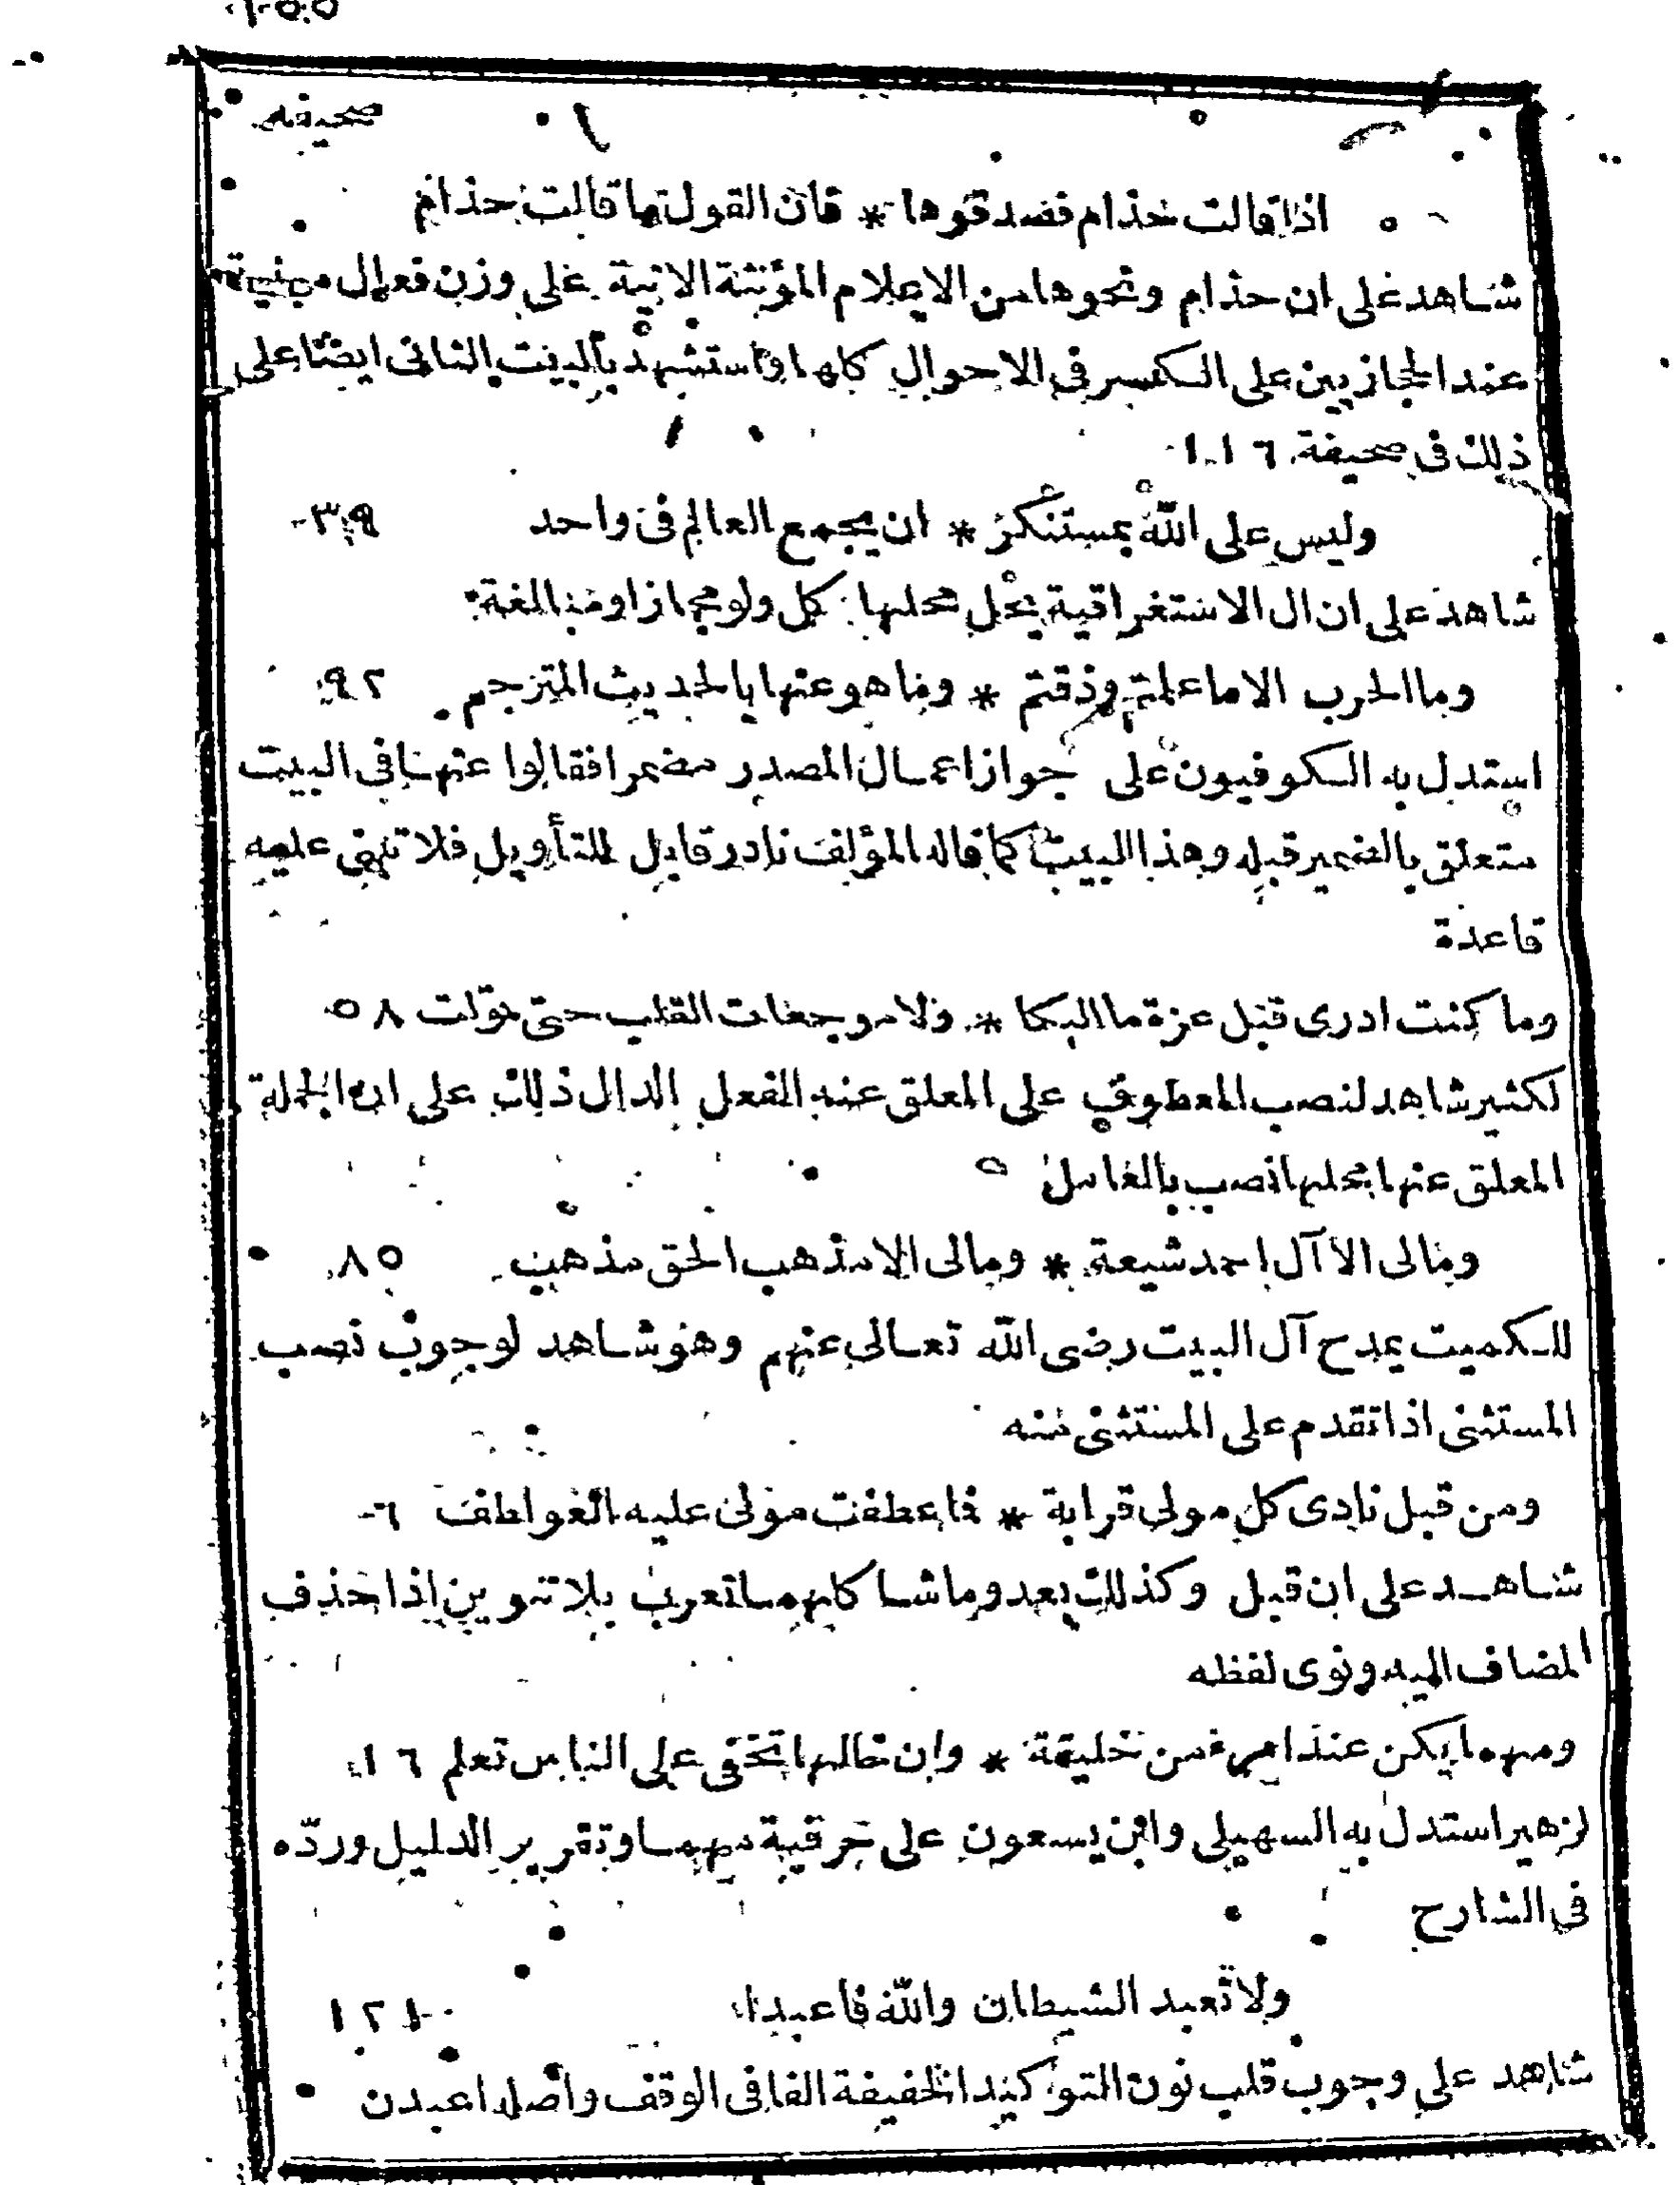 صحيفه
اذا قالت حذام فصدقوها * فان القول ما قالت حذام
شاهد على ان حذام ونحوها من الاعلام المؤنثة الاتية على وزن فعال مبنية
عند الحجازيين على الكسر فى الاحوال كلها واستشهد بالبيت الثانى ايضا على
ذلك فى صحيفة ١١٦
وليس على الله بمستنكر * ان يجمع العالم فى واحد ٣٩
شاهد على ان ال الاستغراقية يحل محلها كل ولو مجازا ومبالغة
وما الحرب الا ما علمتم وذقتم * وما هو عنها بالحديث المترجم ٩٢
استدل به الكوفيون على جواز اعمال المصدر مضمرا فقالوا عنها فى البيت
متعلق بالضمير قبله وهذا البيت كما قاله المؤلف نادر قابل للتأويل فلا تبنى عليه
قاعدة
وما كنت ادرى قبل عزة ما البكا * ولا موجعات القلب حتى تولت ٥٨
لكثير شاهد لنصب المعطوف على المعلق عنه الفعل الدال ذلك على ان الجملة
المعلق عنها محلها نصب بالعامل
ومالى الا آل احمد شيعة * ومالى الا مذهب الحق مذهب ٨٥
للكميت يمدح آل البيت رضى الله تعالى عنهم وهو شاهد لوجوب نصب
المستثنى اذا تقدم على المستثنى منه
ومن قبل نادى كل مولى قرابة * فما عطفت مولى عليه العواطف ٦
شاهد على ان قبل وكذلك بعد وما شاكلهما تعرب بلا تنوين اذا حذف
المضاف اليه ونوى لفظه
ومهما يكن عند امرء من خليقة * وان خالها تخفى على الناس تعلم ١٦
لزهير استدل به السهيلى وابن يسعون على حرفية مهما وتقرير الدليل وردّه
فى الشارح
ولا تعبد الشيطان والله فاعبدا ١٢١
شاهد على وجوب قلب نون التوكيد الخفيفة الفا فى الوقف واصله اعبدن